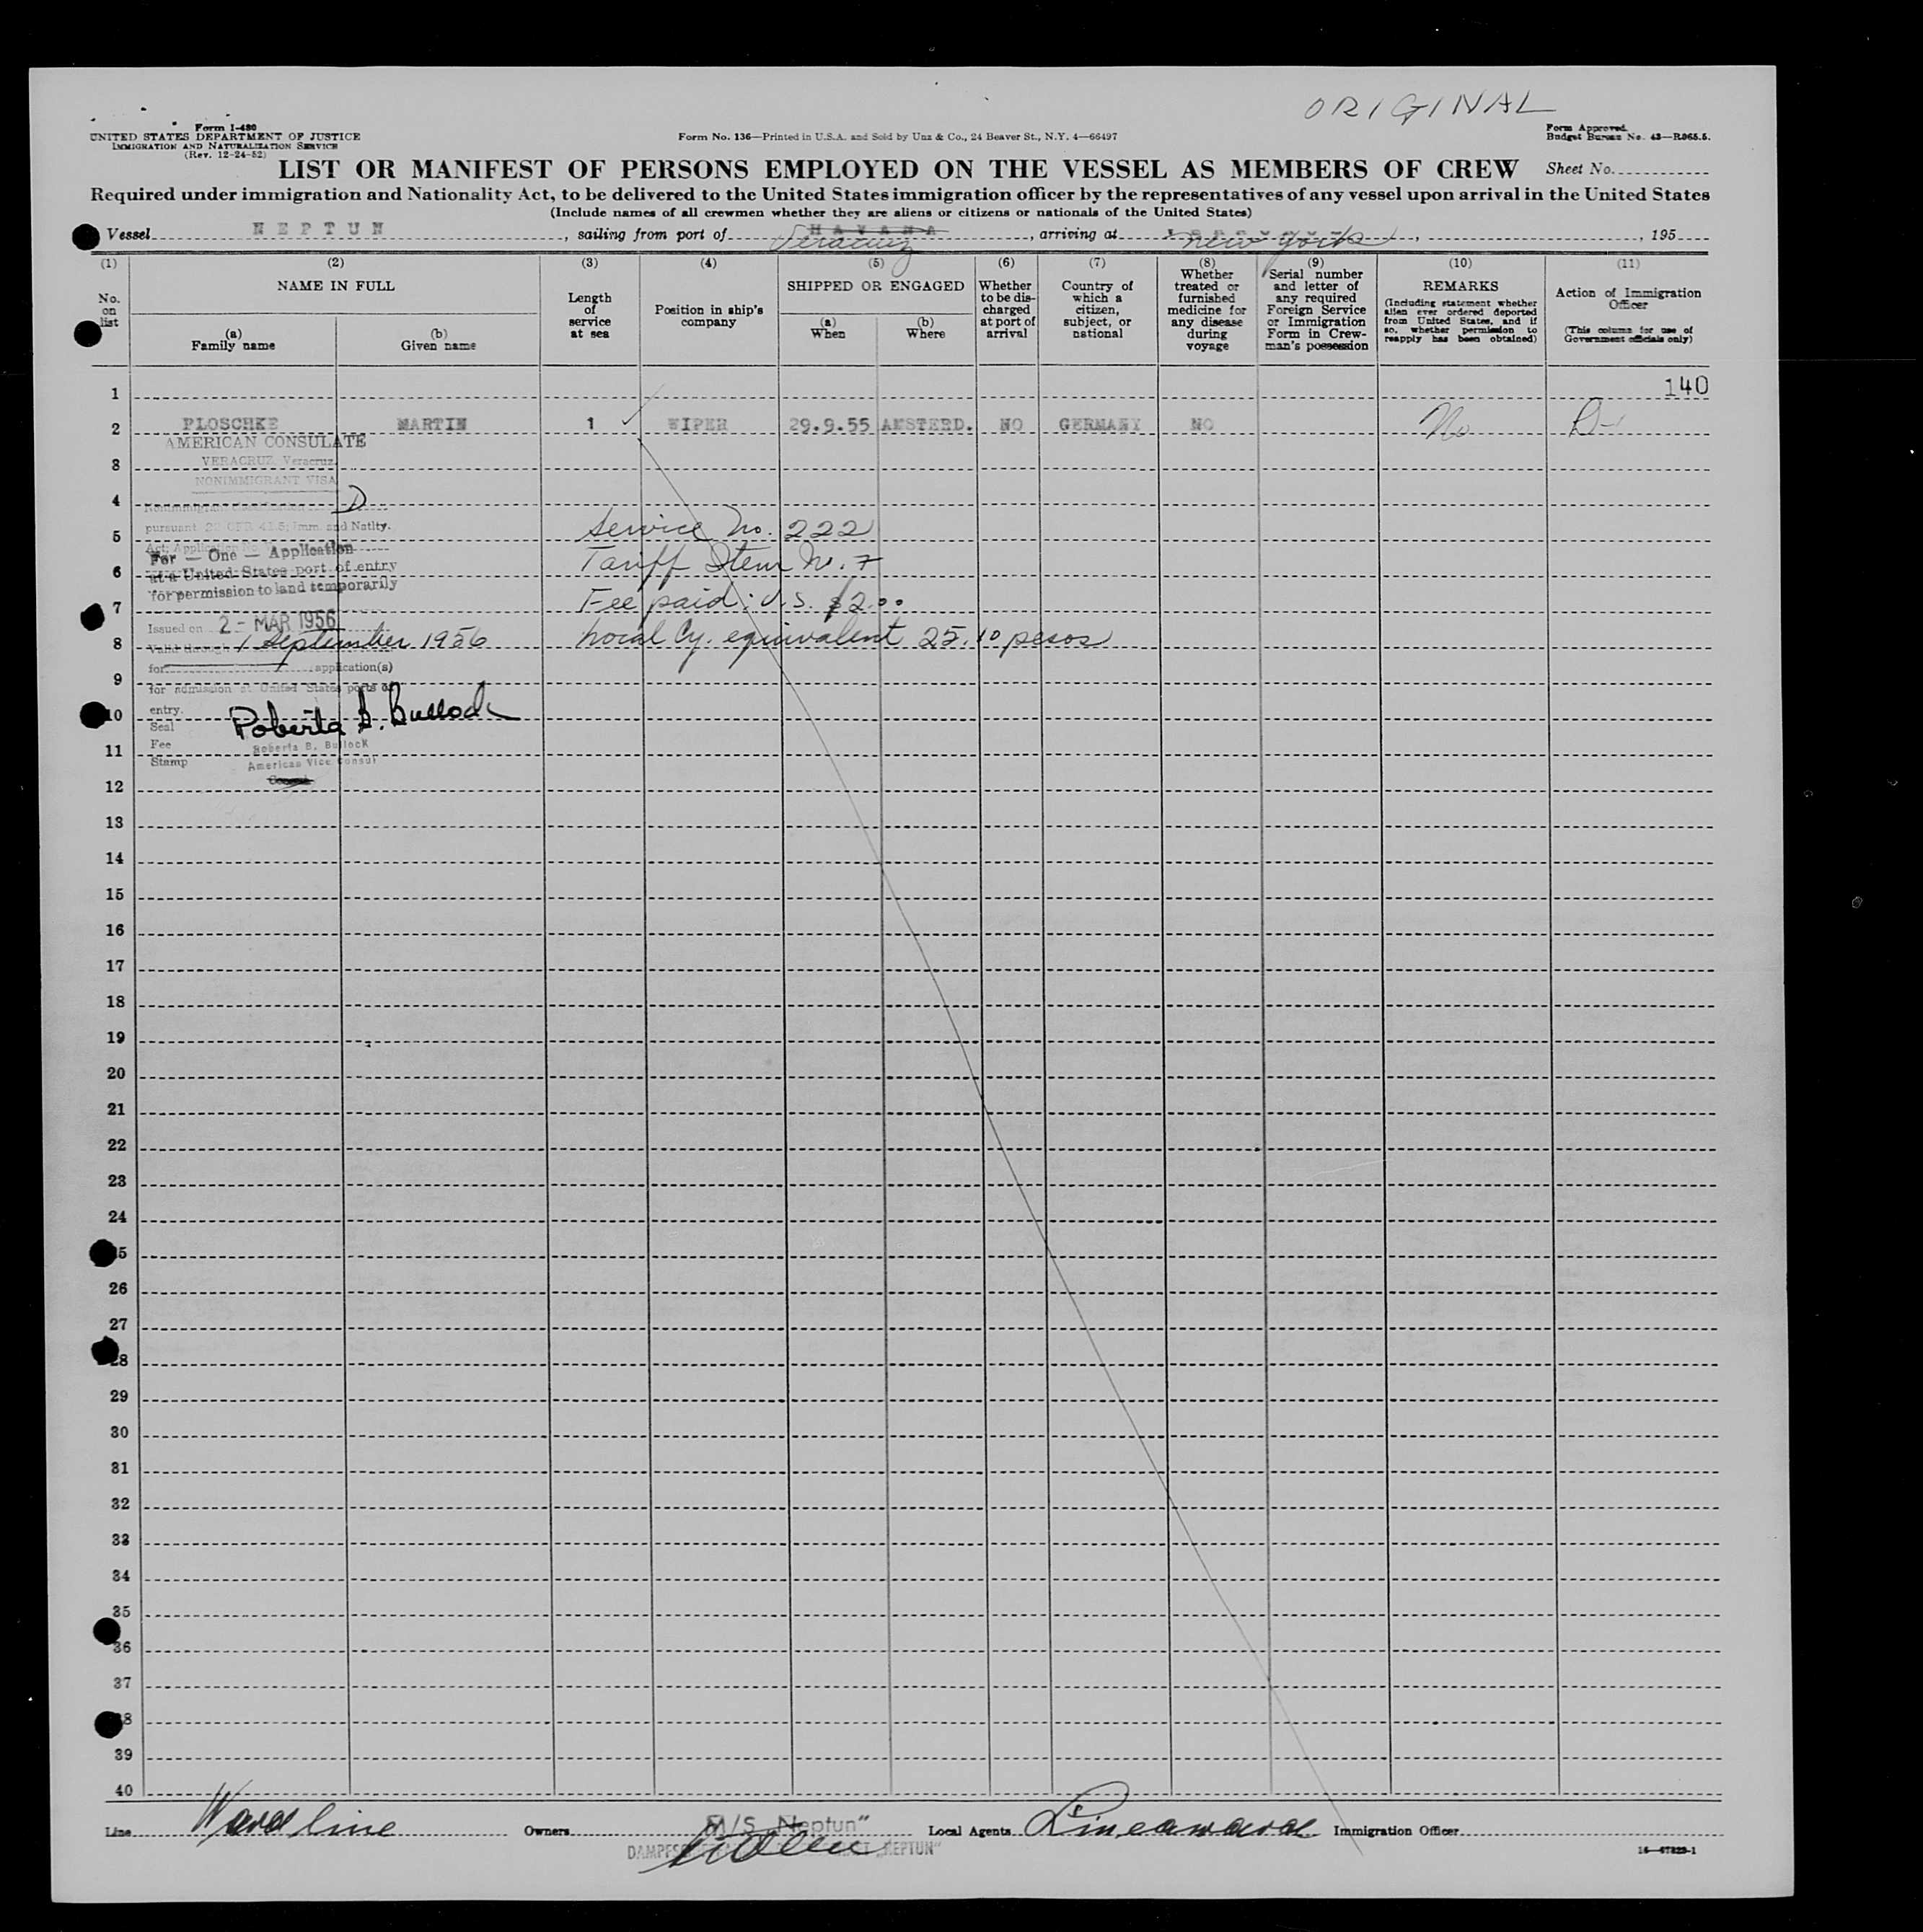 ORIGINAL
Form I-480
UNITED STATES DEPARTMENT OF JUSTICE
IMMIGRATION AND NATURALIZATION SERVICE
(Rev. 12-24-52)
Form No. 136—Printed in U.S.A. and Sold by Unz & Co., 24 Beaver St., N.Y. 4—66497
Form Approved.
Budget Bureau No. 43—R065.5.
LIST OR MANIFEST OF PERSONS EMPLOYED ON THE VESSEL AS MEMBERS OF CREW Sheet No.
Required under immigration and Nationality Act, to be delivered to the United States immigration officer by the representatives of any vessel upon arrival in the United States
(Include names of all crewmen whether they are aliens or citizens or nationals of the United States)
Vessel NEPTUN, sailing from port of HAVANA Veracruz, arriving at New York, 195
(1) (2) (3) (4) (5) (6) (7) (8) (9) (10) (11)
No. on list
NAME IN FULL
(a) Family name
(b) Given name
Length of service at sea
Position in ship's company
SHIPPED OR ENGAGED
(a) When
(b) Where
Whether to be discharged at port of arrival
Country of which a citizen, subject, or national
Whether treated or furnished medicine for any disease during voyage
Serial number and letter of any required Foreign Service or Immigration Form in Crewman's possession
REMARKS
(Including statement whether alien ever ordered deported from United States, and if so, whether permission to reapply has been obtained)
Action of Immigration Officer
(This column for use of Government officials only)
1 140
2 PLOSCHKE MARTIN 1 WIPER 29.9.55 AMSTERD. NO GERMANY NO No D-1
AMERICAN CONSULATE
3 VERACRUZ, Veracruz
NONIMMIGRANT VISA
4 Nonimmigrant Classification D
pursuant 22 CFR 41.5; Imm. and Natlty.
5 Service No. 222
Act; Application No.
For — One — Application
Tariff Item No. 7
6 at a United States port of entry
for permission to land temporarily
7 Fee paid: U.S. $2.00
Issued on 2 - MAR 1956
8 Valid through 1 September 1956 Local Cy. equivalent 25.10 pesos
for application(s)
9 for admission at United States ports of
entry.
10 Seal Roberta B. Bullock
Fee Roberta B. Bullock
11 Stamp American Vice Consul
Consul
12
13
14
15
16
17
18
19
20
21
22
23
24
25
26
27
28
29
30
31
32
33
34
35
36
37
38
39
40
Line Ward line Owners M/S „Neptun" Local Agents Immigration Officer
„NEPTUN"
16—67823-1